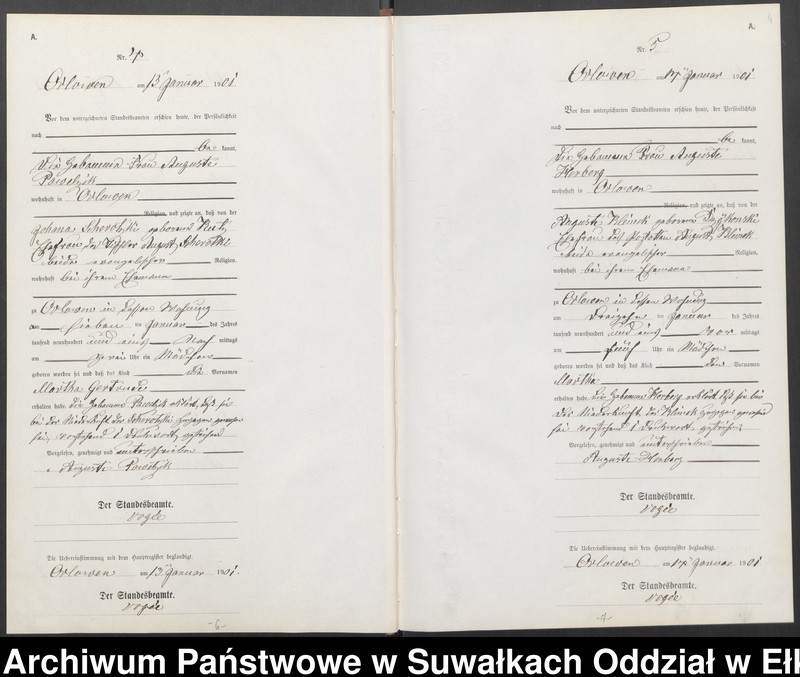 A.
Nr. 4
Orlowen am 13 Januar 1901
Vor dem unterzeichneten Standesbeamten erschien heute, der Persönlichkeit
nach
be kannt,
die Hebamme Frau Auguste
Pawelzik
wohnhaft in Orlowen
Religion, und zeigte an, daß von der
geborenen
Ehefrau des August
beide evangelischer Religion,
wohnhaft bei ihrem Ehemann
zu Orlowen in dessen Wohnung
am sieben ten Januar des Jahres
tausend neunhundert und eins Nach mittags
um Uhr ein Mädchen
geboren worden sei und daß das Kind die Vornamen
Martha Gertrude
erhalten habe. Die Hebamme Pawelzik erklärt, daß sie
bei der Niederkunft der zugegen gewesen
sei, vorstehend 1 Druckwort gestrichen
Vorgelesen, genehmigt und unterschrieben
Auguste Pawelzik
Der Standesbeamte.
Vogée
Die Uebereinstimmung mit dem Hauptregister beglaubigt.
Orlowen am 13 Januar 1901.
Der Standesbeamte.
Vogée
-6-
4
A.
Nr. 5
Orlowen am 17 Januar 1901
Vor dem unterzeichneten Standesbeamten erschien heute, der Persönlichkeit
nach
be kannt,
die Hebamme Frau Auguste
Herberg
wohnhaft in Orlowen
Religion, und zeigte an, daß von der
Auguste Klimek geborenen
Ehefrau des August Klimek
beide evangelischer Religion,
wohnhaft bei ihrem Ehemann
zu Orlowen in dessen Wohnung
am Dreizehn ten Januar des Jahres
tausend neunhundert und eins Vor mittags
um fünf Uhr ein Mädchen
geboren worden sei und daß das Kind den Vornamen
Martha
erhalten habe. Die Hebamme Herberg erklärt daß sie bei
der Niederkunft der Klimek zugegen gewesen
sei, vorstehend 1 Druckwort gestrichen
Vorgelesen, genehmigt und unterschrieben
Auguste Herberg
Der Standesbeamte.
Vogée
Die Uebereinstimmung mit dem Hauptregister beglaubigt.
Orlowen am 17 Januar 1901
Der Standesbeamte.
Vogée
-7-
Archiwum Państwowe w Suwałkach Oddział w Ełk